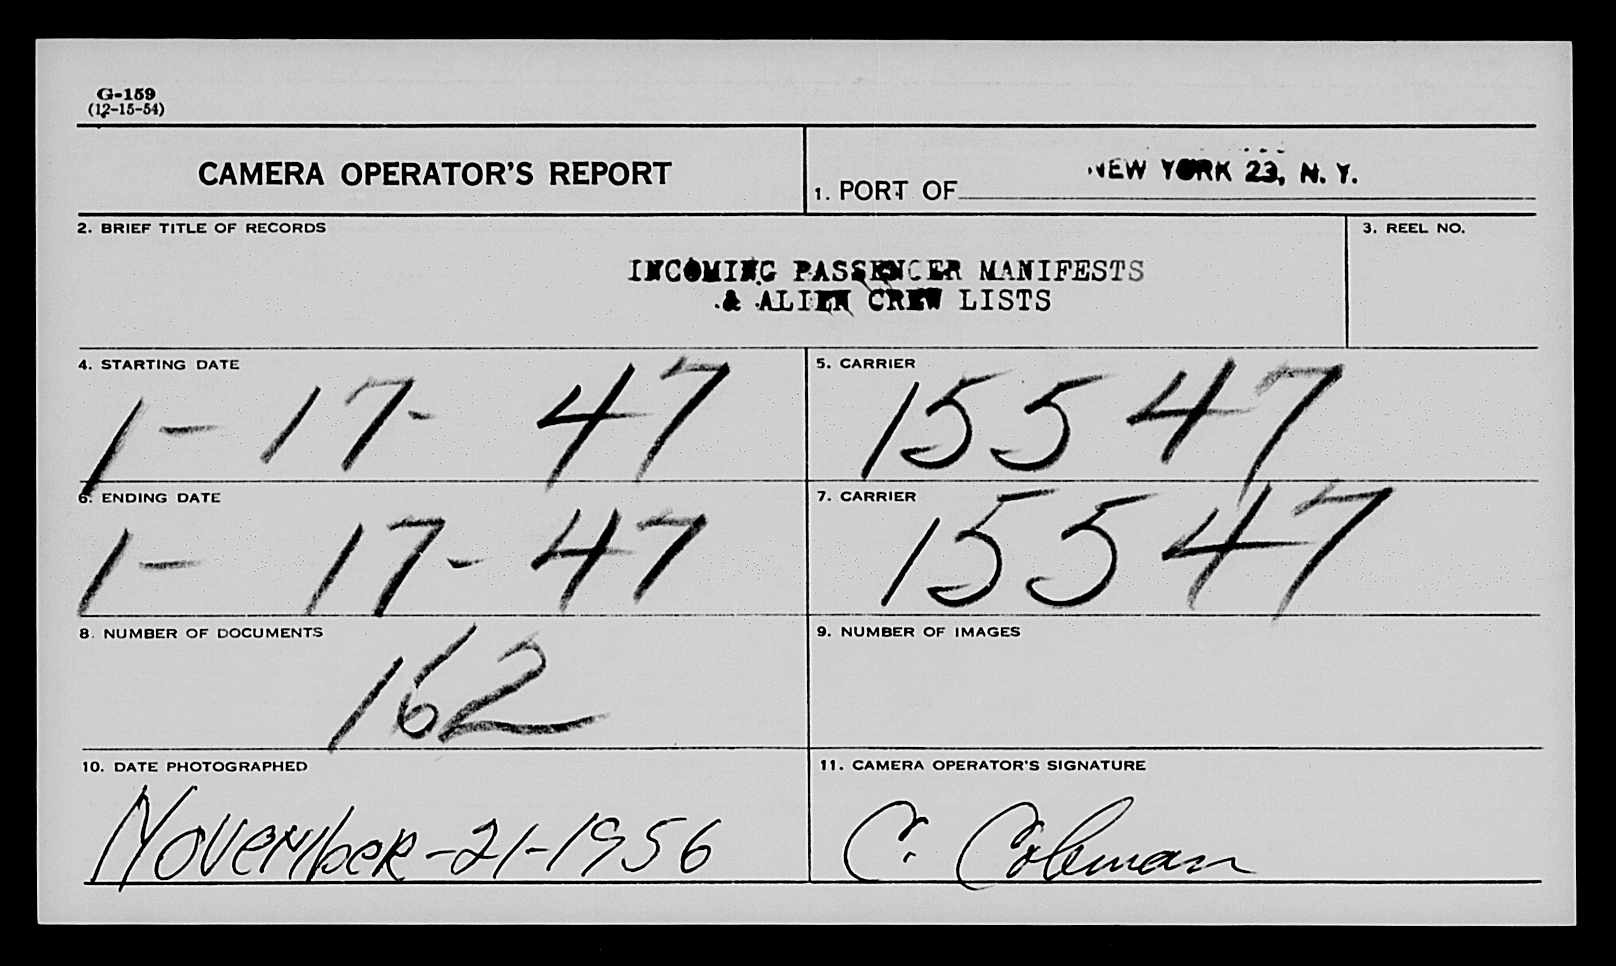 G-159
(12-15-54)
CAMERA OPERATOR'S REPORT
1. PORT OF NEW YORK 23, N. Y.
2. BRIEF TITLE OF RECORDS
3. REEL NO.
INCOMING PASSENGER MANIFESTS
& ALIEN CREW LISTS
4. STARTING DATE
1-17-47
5. CARRIER
15547
6. ENDING DATE
1-17-47
7. CARRIER
15547
8. NUMBER OF DOCUMENTS
162
9. NUMBER OF IMAGES
10. DATE PHOTOGRAPHED
November-21-1956
11. CAMERA OPERATOR'S SIGNATURE
C. Coleman